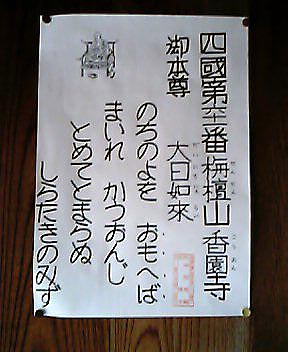 四國第六十一番栴檀山 香園寺
御本尊 大日如來
のちのよを おもへば
まいれ かうおんじ
とめてとまらぬ
しらたきのみず